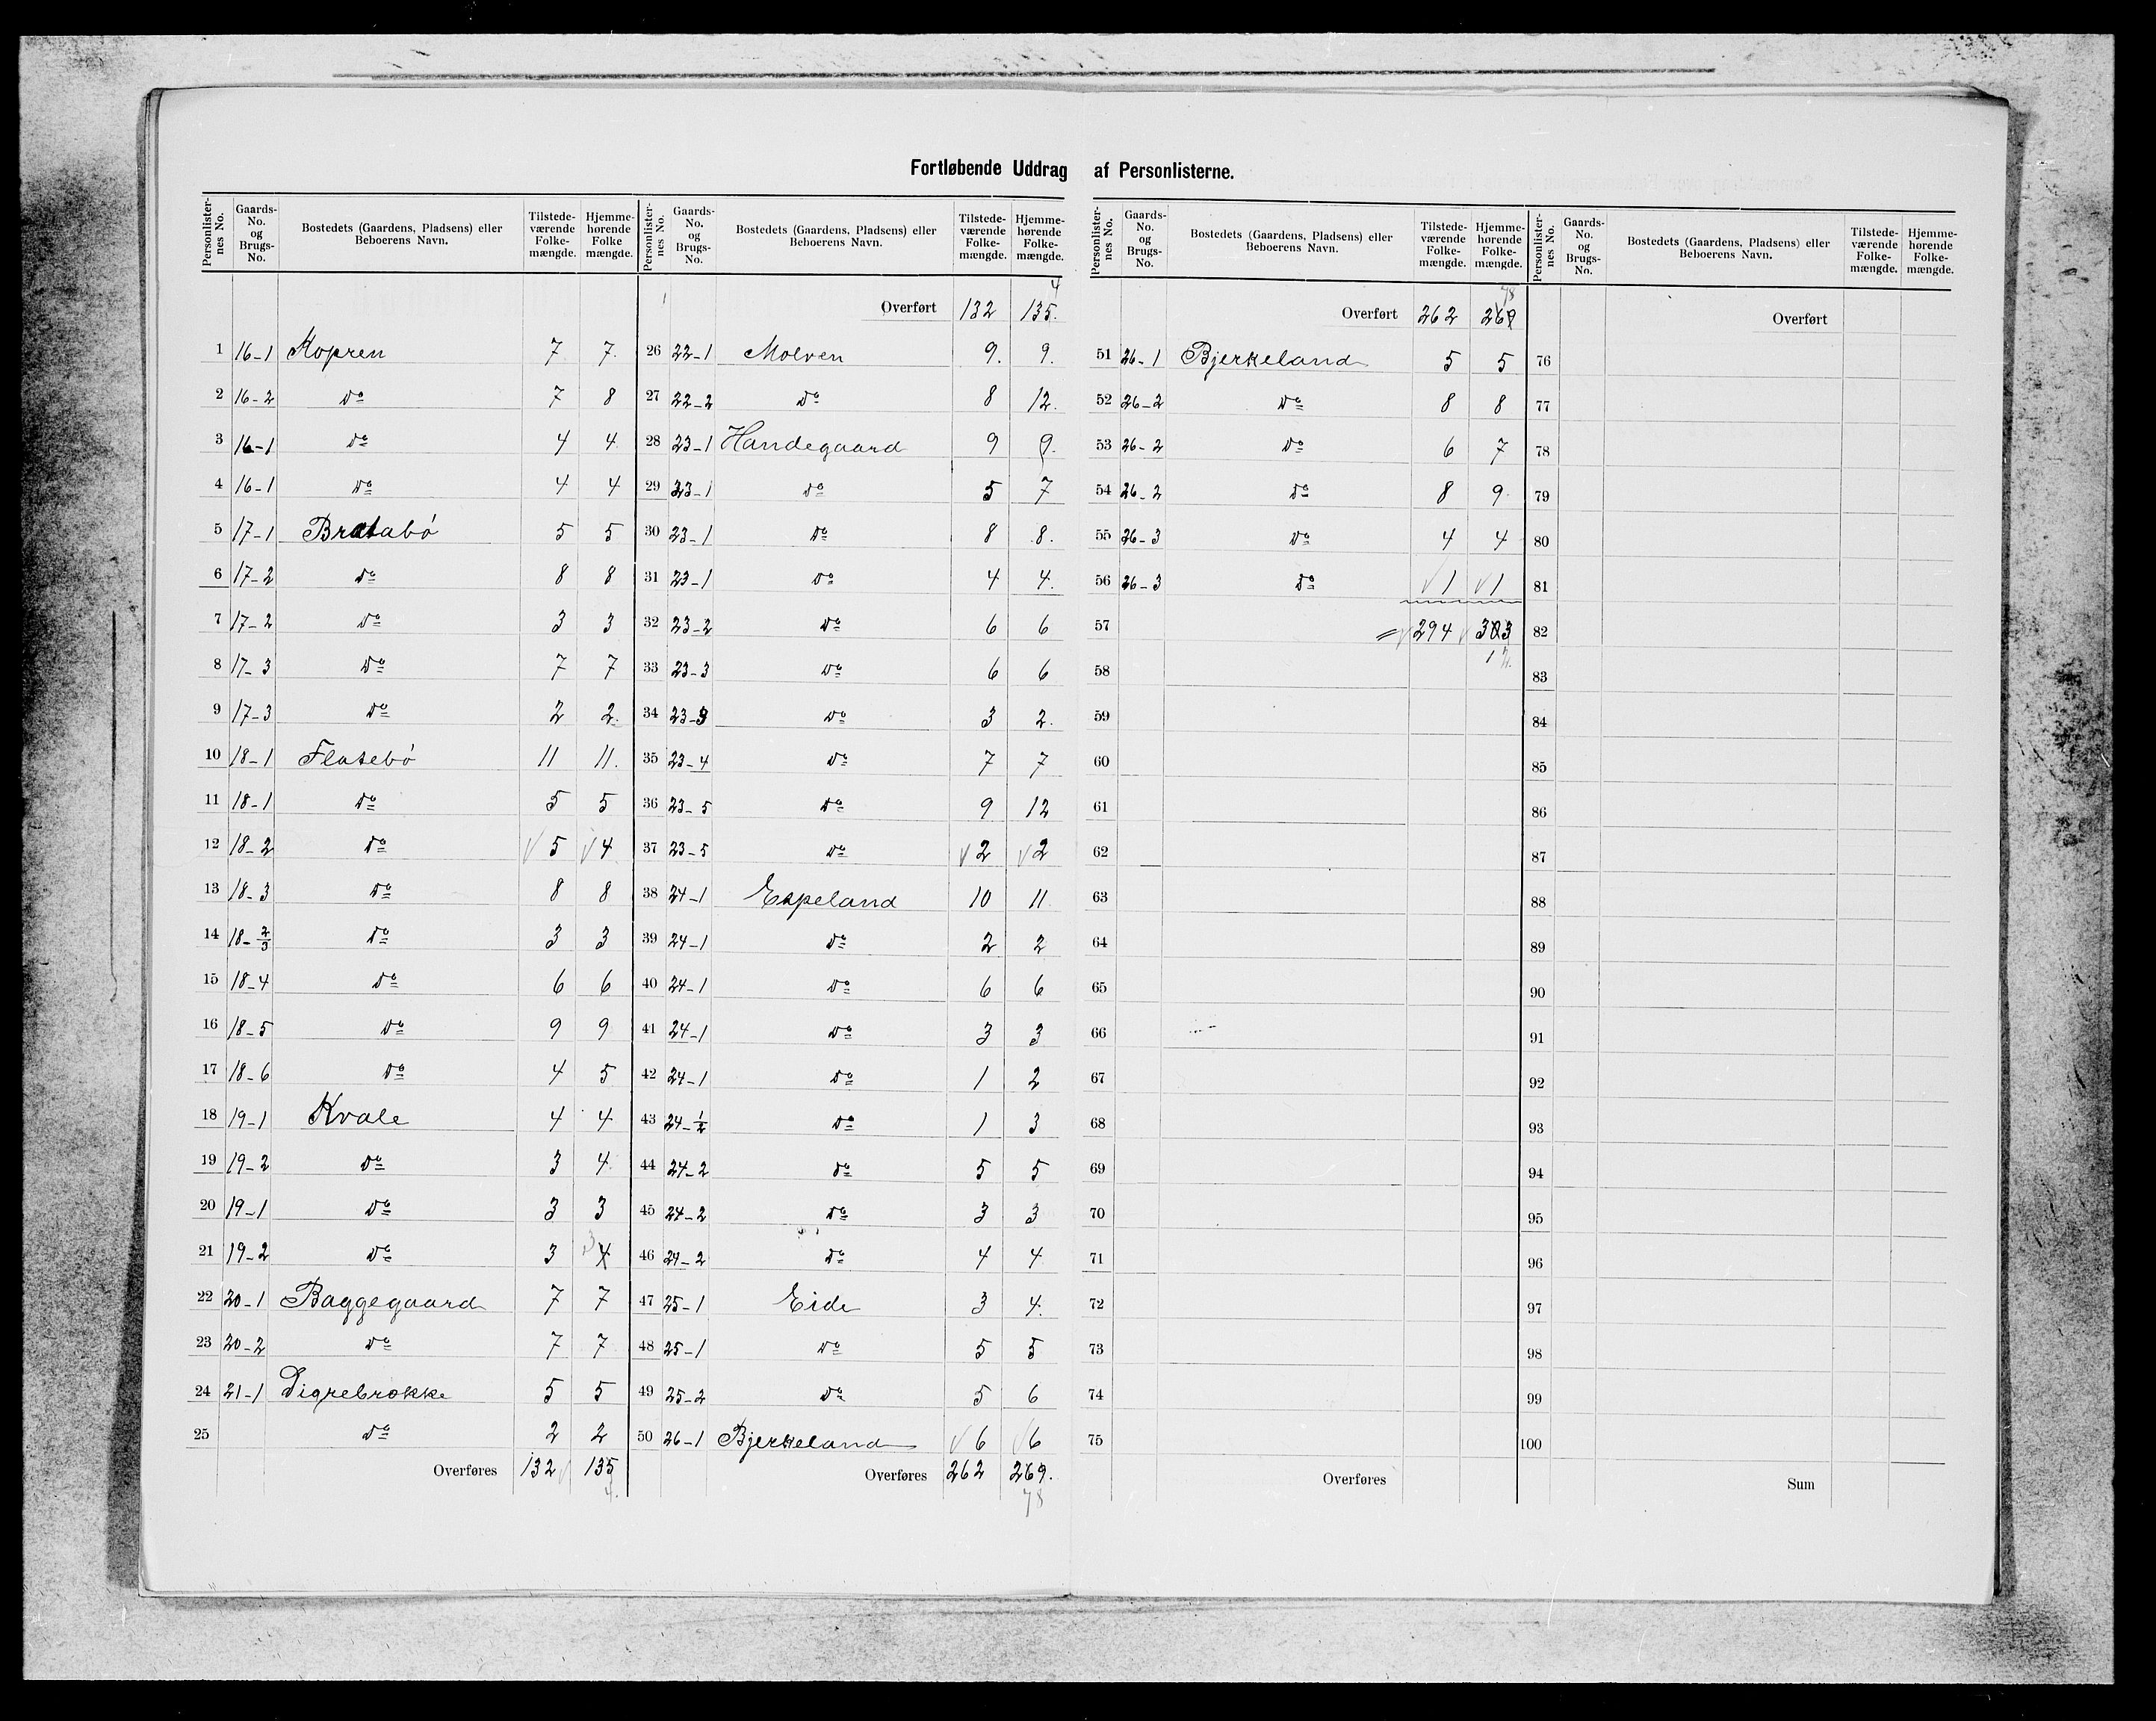 Fortløbende Uddrag af Personlisterne.
Personlister-nes No. | Gaards-No. og Brugs-No. | Bostedets (Gaardens, Pladsens) eller Beboerens Navn. | Tilstede-værende Folke-mængde. | Hjemme-hørende Folke mængde.
1 16-1 Kopren 7 7
2 16-2 Do 7 8
3 16-1 Do 4 4
4 16-1 Do 4 4
5 17-1 Bratabø 5 5
6 17-2 Do 8 8
7 17-2 Do 3 3
8 17-3 Do 7 7
9 17-3 Do 2 2.
10 18-1 Flatebø 11 11.
11 18-1 Do 5 5
12 18-2 Do √ 5 √ 4
13 18-3 Do 8 8
14 18-2/3 Do 3 3
15 18-4 Do 6 6
16 18-5 Do 9 9
17 18-6 Do 4 5
18 19-1 Kvale 4 4
19 19-2 Do 3 4
20 19-1 Do 3 3
21 19-2 Do 3 3 4
22 20-1 Baggegaard 7 7
23 20-2 Do 7 7
24 21-1 Digrebrokke 5 5
25 Do 2 2
Overføres 132 √ 135
4.
Personlister-nes No. | Gaards-No. og Brugs-No. | Bostedets (Gaardens, Pladsens) eller Beboerens Navn. | Tilstede-værende Folke-mængde. | Hjemme-hørende Folke-mængde.
4
Overført 132 135.
26 22-1 Molven 9. 9.
27 22-2 Do 8 12.
28 23-1 Handegaard 9 9.
29 23-1 Do 5 7
30 23-1 Do 8 8.
31 23-1 Do 4 4.
32 23-2 Do 6 6
33 23-3 Do 6 6
34 23-3 Do 3 2.
35 23-4 Do 7 7
36 23-5 Do 9 12
37 23-5 Do √ 2 √ 2
38 24-1 Espeland 10 11
39 24-1 Do 2 2
40 24-1 Do 6 6
41 24-1 Do 3 3
42 24-1 Do 1 2
43 24-1/2 Do 1 3
44 24-2 Do 5 5
45 24-2 Do 3 3
46 24-2 Do 4 4
47 25-1 Eide 3 4.
48 25-1 Do 5 5
49 25-2 Do 5 6
50 26-1 Bjerkeland √ 6 √ 6
Overføres 262 269.
78
Personlister-nes No. | Gaards-No. og Brugs-No. | Bostedets (Gaardens, Pladsens) eller Beboerens Navn. | Tilstede-værende Folke-mængde. | Hjemme-hørende Folke-mængde.
78
Overført 262 269
51 26-1 Bjerkeland 5 5
52 26-2 Do 8 8
53 26-2 Do 6 7
54 26-2 Do 8 9
55 26-3 Do 4 4
56 26-3 Do √ 1 √ 1
57 = √ 294 √ 303
58 1
59
60
61
62
63
64
65
66
67
68
69
70
71
72
73
74
75
Overføres
Personlister-nes No. | Gaards-No. og Brugs-No. | Bostedets (Gaardens, Pladsens) eller Beboerens Navn. | Tilstede-værende Folke-mængde. | Hjemme-hørende Folke-mængde.
Overført
76
77
78
79
80
81
82
83
84
85
86
87
88
89
90
91
92
93
94
95
96
97
98
99
100
Sum